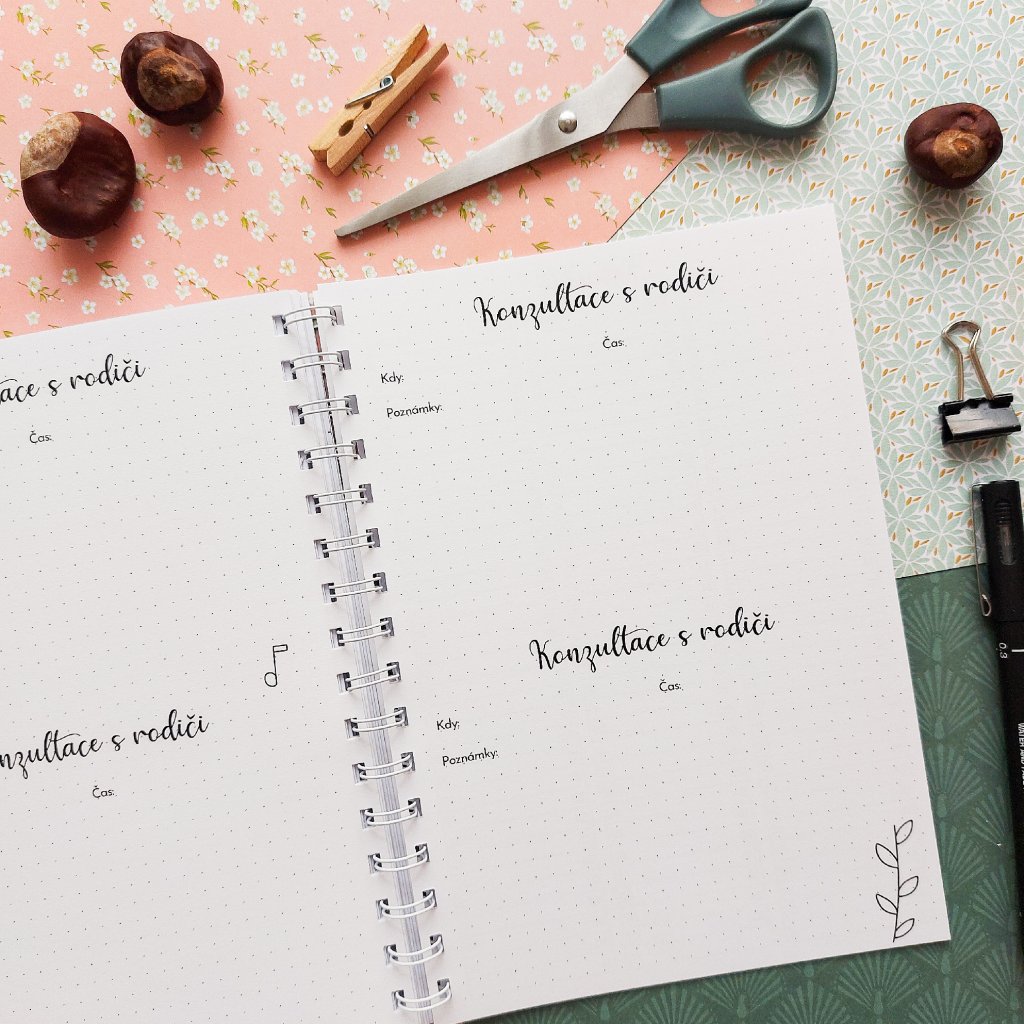 s rodiči
Čas:
s rodiči
Čas:
Konzultace s rodiči
Čas:
Kdy:
Poznámky:
Konzultace s rodiči
Čas:
Kdy:
Poznámky:
0.3